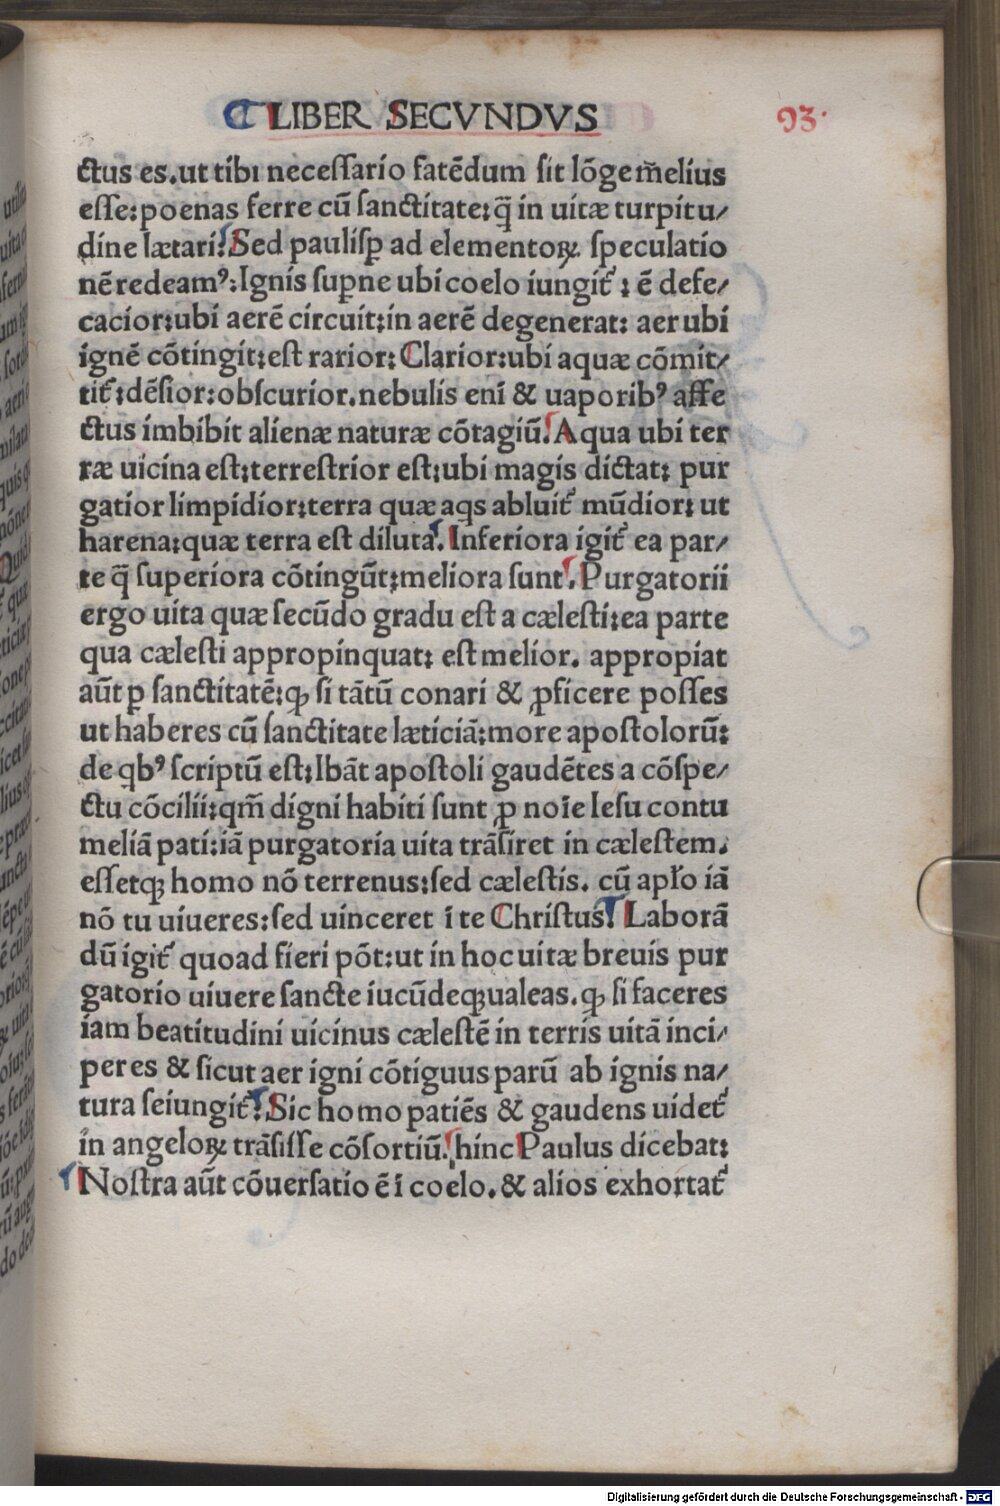 LIBER SECVNDVS 93.
ctus es.ut tibi necessario fatēdum sit lōge m̄elius
esse:poenas ferre cū sanctitate:q̄ in uitæ turpitu/
dine lætari. Sed paulisꝑ ad elementoꝝ speculatio
nē redeamꝰ:Ignis suꝑne ubi coelo iungit᷑: ē defe/
cacior:ubi aerē circuit:in aerē degenerat: aer ubi
ignē cōtingit:est rarior: Clarior:ubi aquæ cōmit/
tit᷑:dēsior:obscurior.nebulis enī & uaporibꝰ affe
ctus imbibit alienæ naturæ cōtagiū. Aqua ubi ter
ræ uicina est:terrestrior est:ubi magis dictat: pur
gatior limpidior:terra quæ aqs abluit᷑ mūdior: ut
harena:quæ terra est diluta. Inferiora igit᷑ ea par/
te q̄ superiora cōtingūt:meliora sunt. Purgatorii
ergo uita quæ secūdo gradu est a cælesti:ea parte
qua cælesti appropinquat: est melior. appropiat
aūt ꝑ sanctitatē:ꝙ si tātū conari & ꝓficere posses
ut haberes cū sanctitate læticiā:more apostolorū:
de qbꝰ scriptū est:Ibāt apostoli gaudētes a cōspe/
ctu cōcilii:qm̄ digni habiti sunt ꝓ noīe Iesu contu
meliā pati:iā purgatoria uita trāsiret in cælestem.
essetqꝫ homo nō terrenus:sed cælestis. cū apło iā
nō tu uiueres:sed uinceret ī te Christus. Laborā
dū igit᷑ quoad fieri pōt:ut in hoc uitæ breuis pur
gatorio uiuere sancte iucūdeqꝫ ualeas.ꝙ si faceres
iam beatitudini uicinus cælestē in terris uitā inci/
peres & sicut aer igni cōtiguus parū ab ignis na/
tura seiungit᷑. Sic homo patiēs & gaudens uidet᷑
in angeloꝝ trāsisse cōsortiū. hinc Paulus dicebat:
Nostra aūt cōuersatio ē ī coelo. & alios exhortat᷑
Digitalisierung gefördert durch die Deutsche Forschungsgemeinschaft - DFG